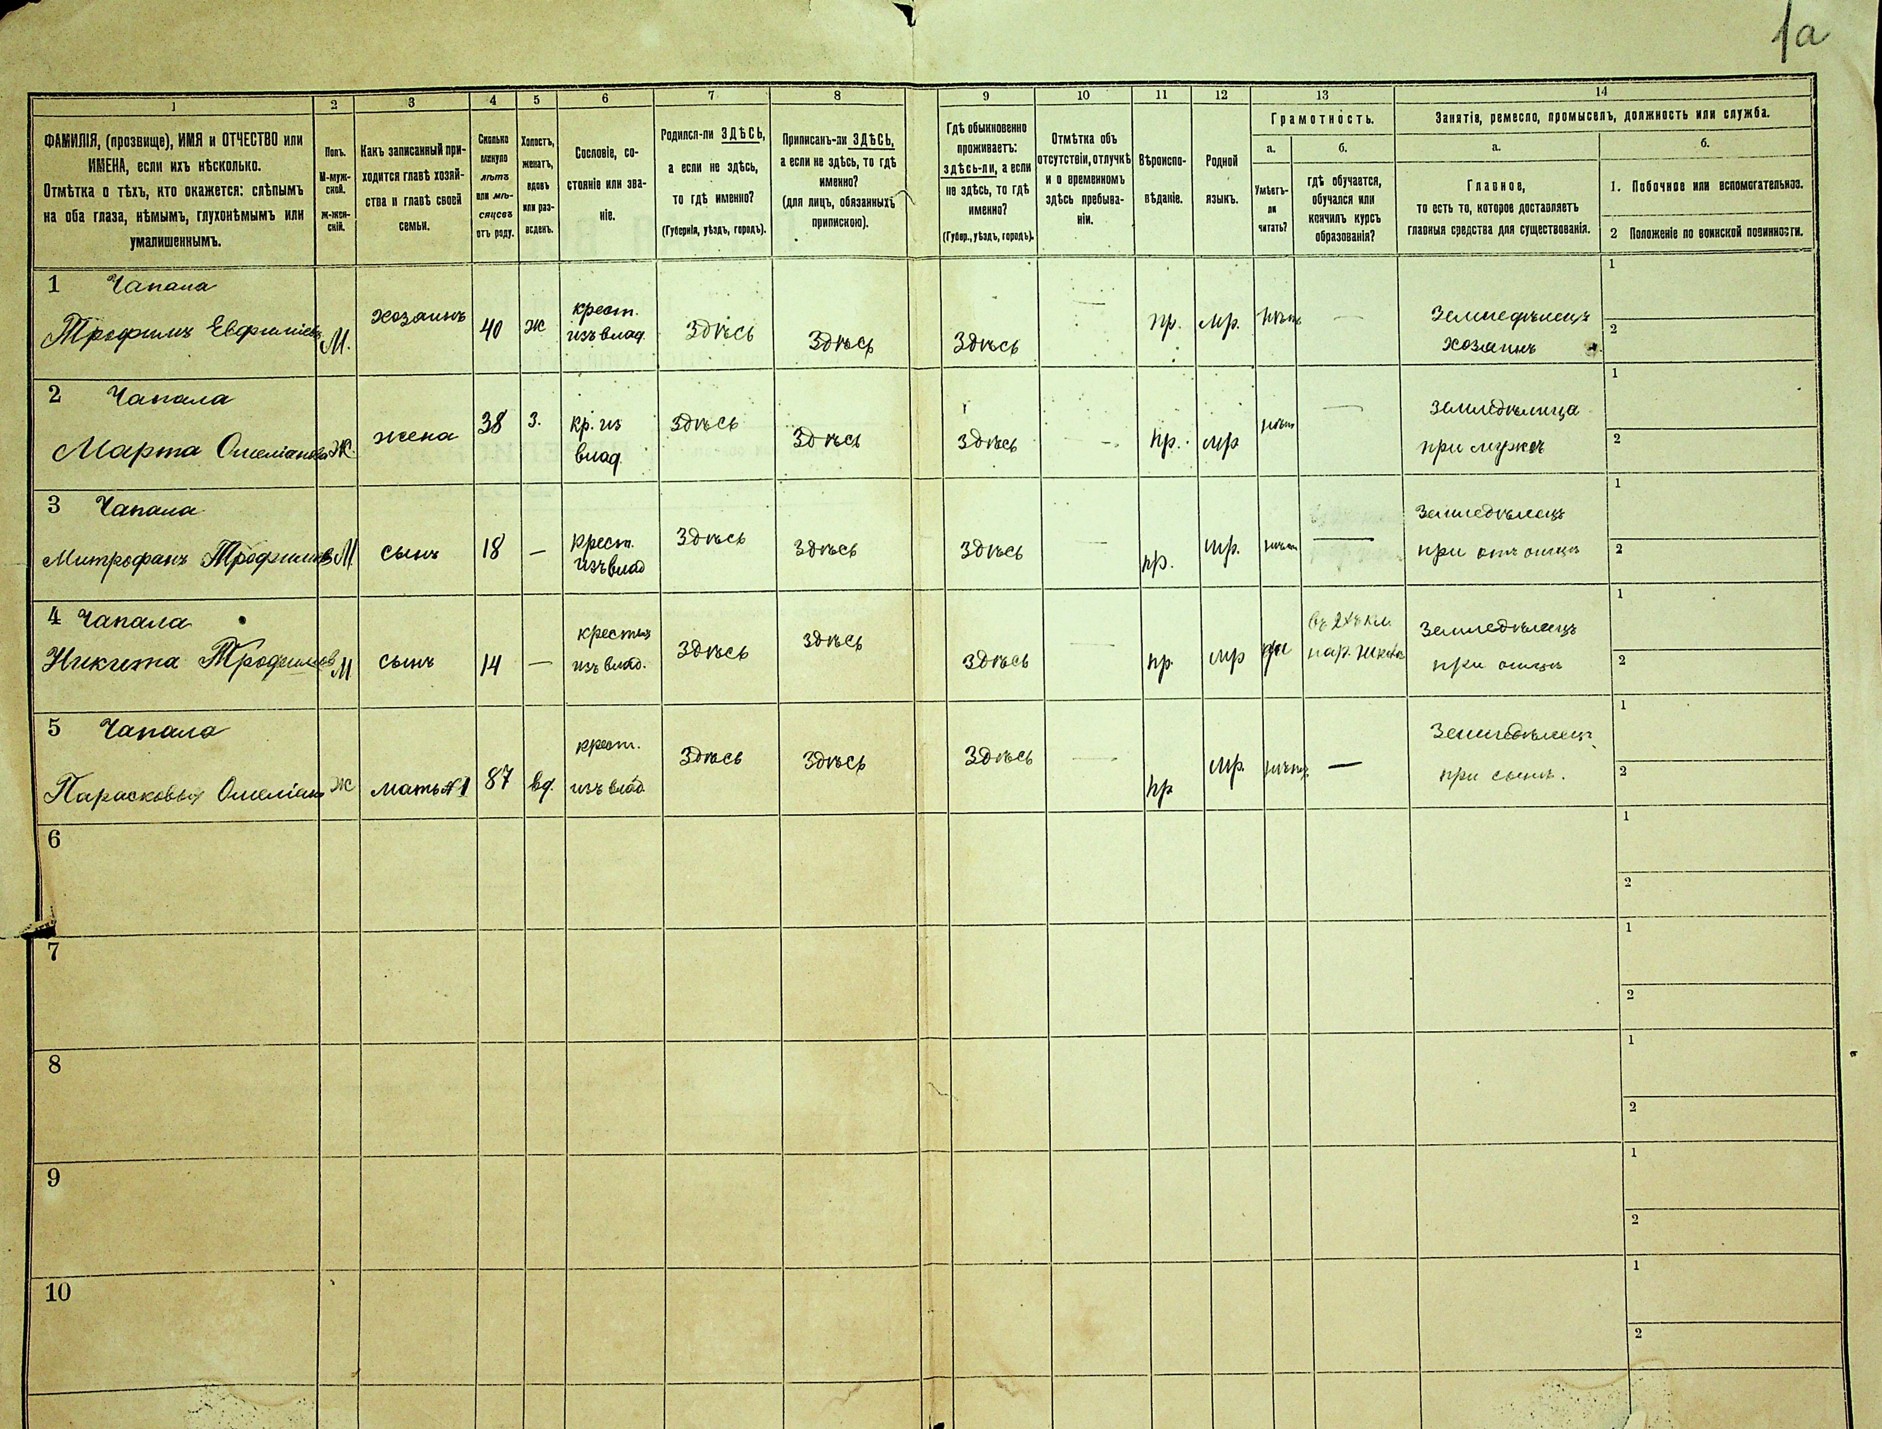 1а
1 2 3 4 5 6 7 8 9 10 11 12 13 14
ФАМИЛІЯ, (прозвище), ИМЯ и ОТЧЕСТВО или
ИМЕНА, если ихъ нѣсколько.
Отмѣтка о тѣхъ, кто окажется: слѣпымъ
на оба глаза, нѣмымъ, глухонѣмымъ или
умалишеннымъ.
Полъ.
М-муж-
ской.
ж-жен-
скій.
Какъ записанный при-
ходится главѣ хозяй-
ства и главѣ своей
семьи.
Сколько
минуло
лѣтъ
или мѣ-
сяцевъ
отъ роду.
Холостъ,
женатъ,
вдовъ
или раз-
веденъ.
Сословіе, со-
стояніе или зва-
ніе.
Родился-ли ЗДѢСЬ,
а если не здѣсь,
то гдѣ именно?
(Губернія, уѣздъ, городъ).
Приписанъ-ли ЗДѢСЬ,
а если не здѣсь, то гдѣ
именно?
(для лицъ, обязанныхъ
припискою).
Гдѣ обыкновенно
проживаетъ:
здѣсь-ли, а если
не здѣсь, то гдѣ
именно?
(Губер., уѣздъ, городъ).
Отмѣтка объ
отсутствіи, отлучкѣ
и о временномъ
здѣсь пребыва-
ніи.
Вѣроиспо-
вѣданіе.
Родной
языкъ.
Грамотность.
а.
Умѣетъ-
ли
читать?
б.
гдѣ обучается,
обучался или
кончилъ курсъ
образованія?
Занятіе, ремесло, промыселъ, должность или служба.
а.
Главное,
то есть то, которое доставляетъ
главныя средства для существованія.
б.
1. Побочное или вспомогательное.
2 Положеніе по воинской повинности.
1 Чапала
Трофимъ Евфиміевъ
М.
хозаинъ
40
ж
крест.
изъ влад.
Здѣсь
Здѣсь
Здѣсь
—
пр.
мр.
нѣтъ
—
Земледѣлецъ
хозаинъ
1
2
2 Чапала
Марта Омеліанова
Ж.
жена
38
З.
кр. из
влад.
здѣсь
Здѣсь
Здѣсь
—
пр.
мр
нѣт
—
Земледѣлица
при мужѣ
1
2
3 Чапала
Митрофанъ Трофимов
М
сынъ
18
—
крест.
изъ влад
Здѣсь
Здѣсь
Здѣсь
—
пр.
мр.
нѣт
—
Земледѣлецъ
при отцѣ
1
2
4 Чапала
Никита Трофимов
М
сынъ
14
—
крестья
изъ влад.
Здѣсь
Здѣсь
Здѣсь
—
пр.
мр
да
въ 2хъ кл.
нар. школѣ
Земледѣлецъ
при отцѣ
1
2
5 Чапала
Парасковья Омеліан
Ж
мать №1
87
вд.
крест.
изъ влад
Здѣсь
Здѣсь
Здѣсь
—
пр
мр.
нѣтъ
—
Земледѣлец
при сынѣ.
1
2
6
1
2
7
1
2
8
1
2
9
1
2
10
1
2